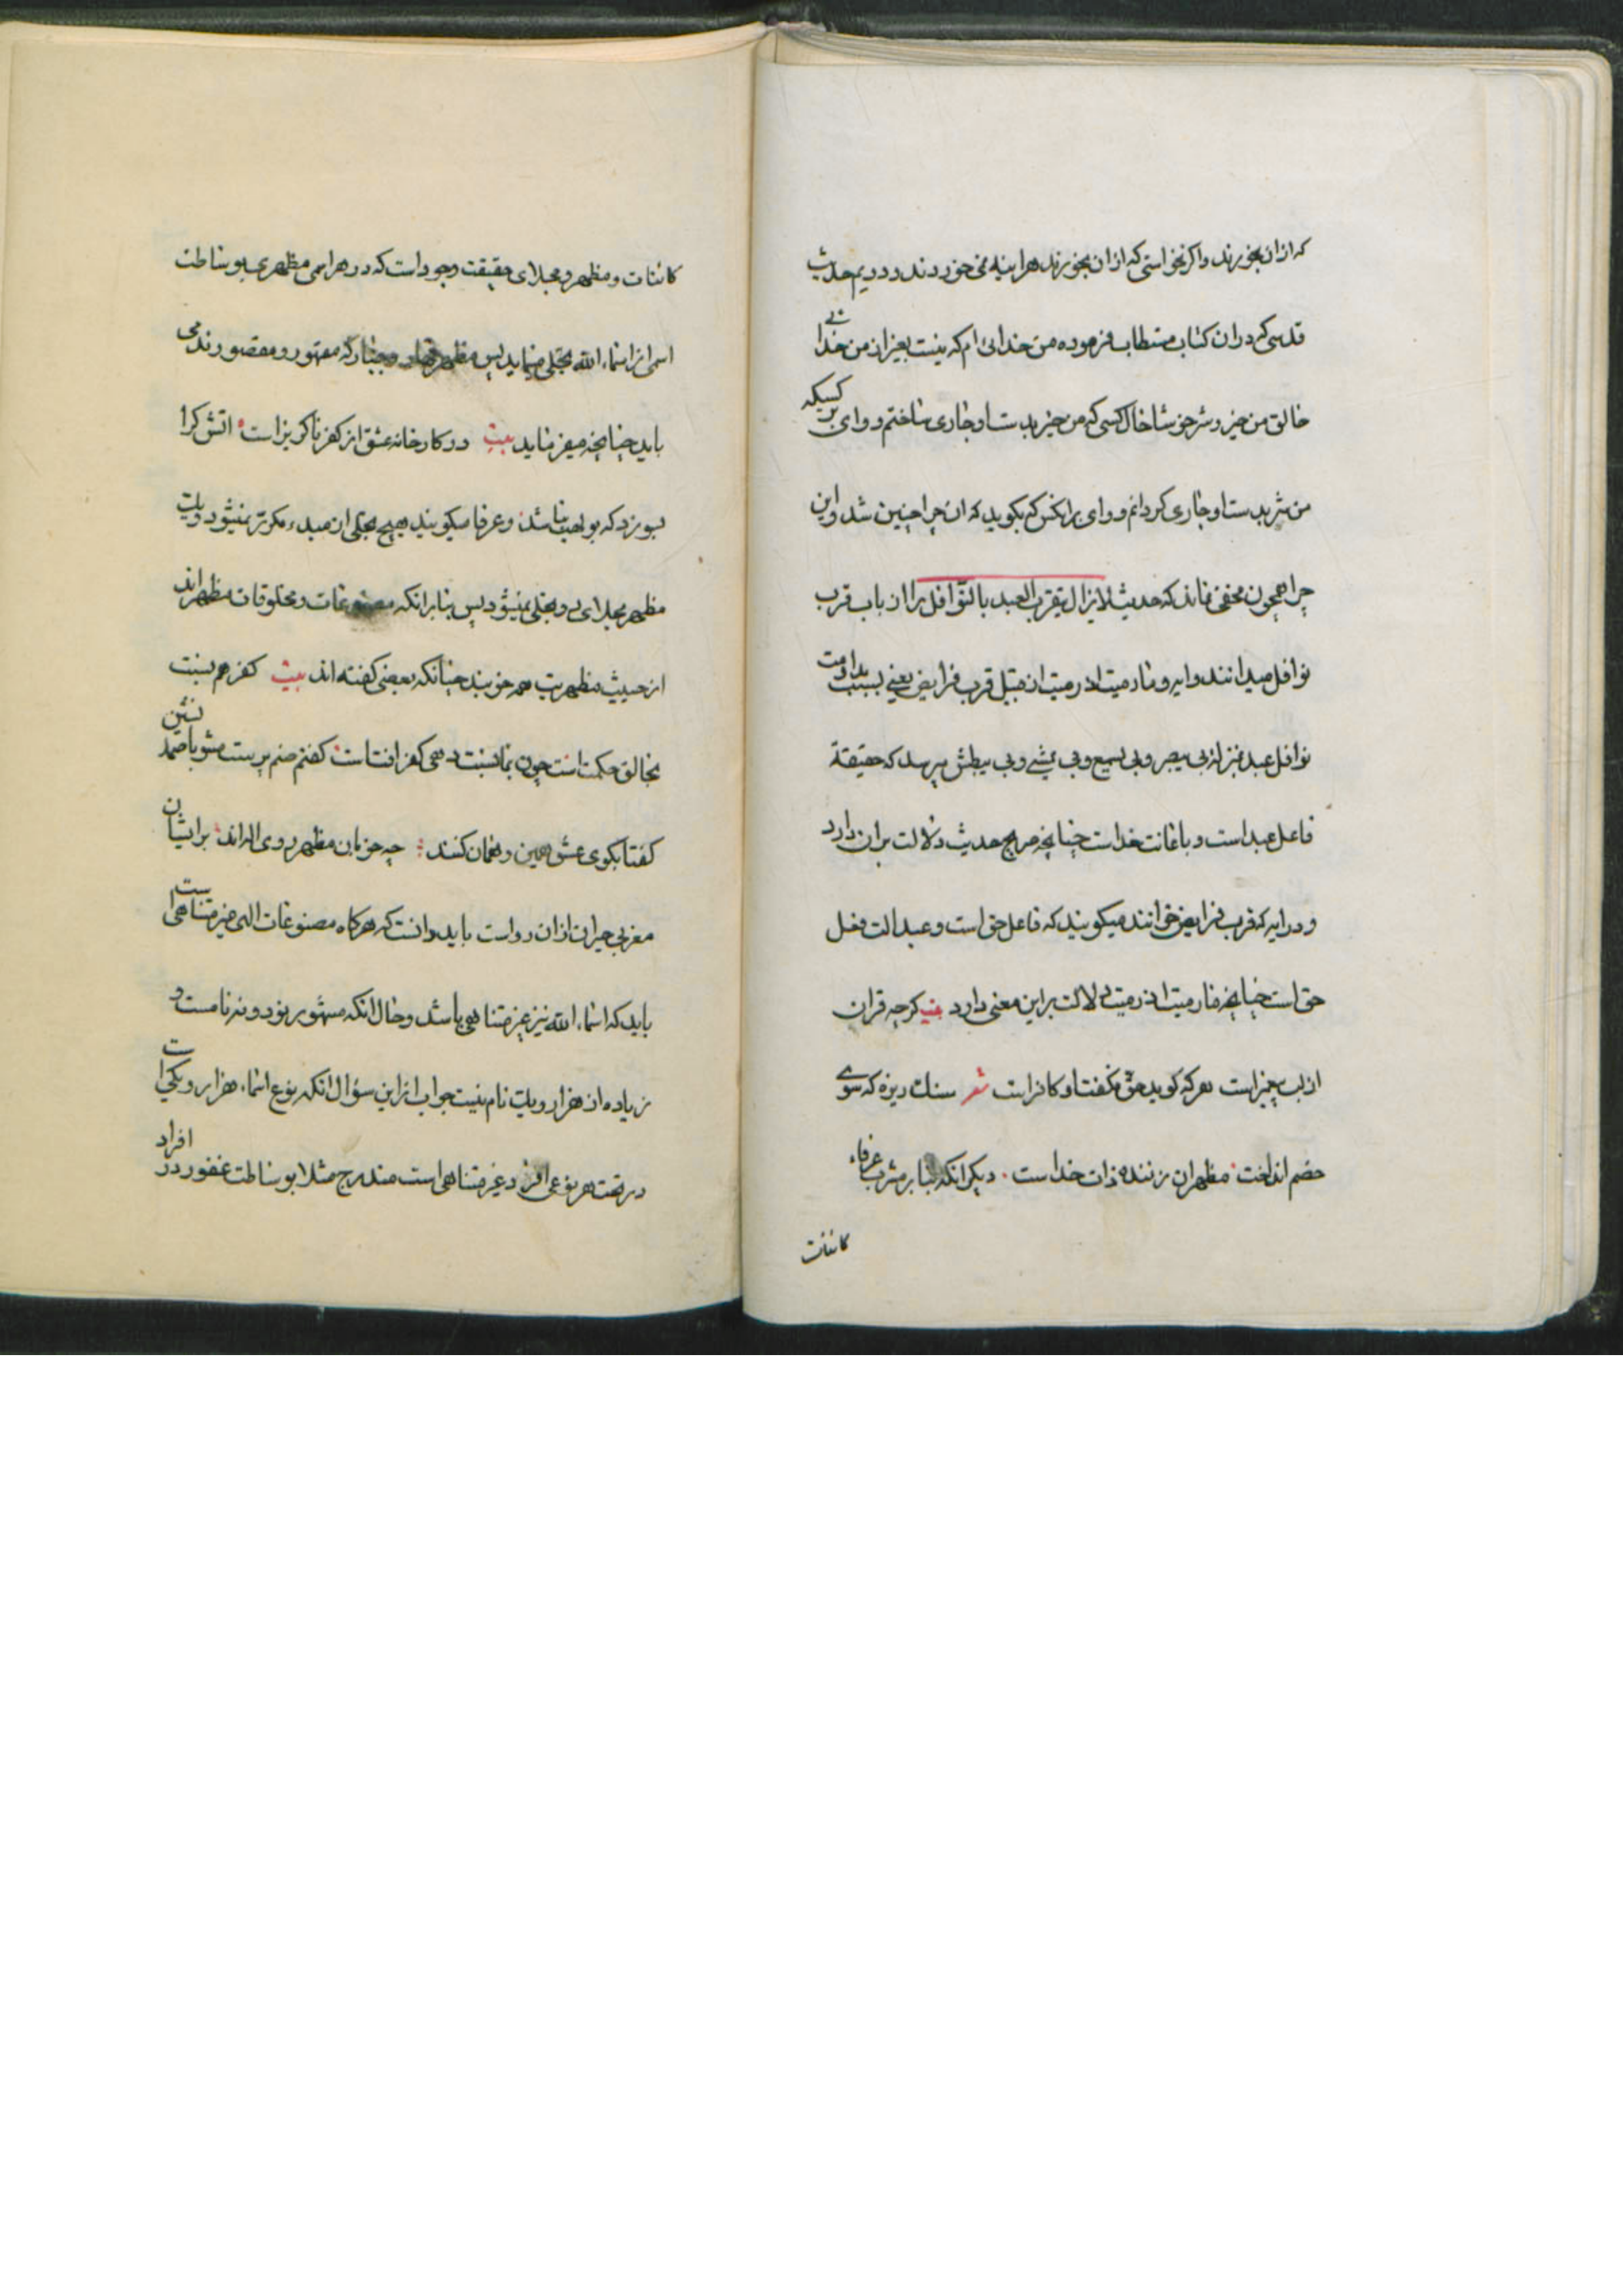 که ازان بخورند واکر نخواستی که ازان بخورند هراینه نمی خوردند و دریم حدیث
قدسی که دران کتاب مستطاب فرموده من خدائی ام که نیست بغیر از من خدائی
خالق من خیر و شر خوشا حال کسی که من خیر بدست او جاری ساختم و وای بر کسیکه
من شر بدست او جاری کردانم و وای برانکس که بکوید که ان چرا چنین شد و این
چرا همچون مخفی نماند که حدیث لایزال یتقرب العبد بالنوافل را از باب قرب
نوافل میدانند وایه و ما رمیت اذ رمیت از قبیل قرب فرایض یعنی بسبب مداومت
نوافل عبد بمنزله بی یبصر و بی یسمع و بی یمشی و بی یبطش میرسد که حقیقة
فاعل عبد است و باعانت خداست چنانچه صریح حدیث دلالت بران دارد
و در ایه که قرب فرایض خوانند میکویند که فاعل حق است و عبد الت فعل
حق است چنانچه مارمیت اذ رمیت دلالت براین معنی دارد بیت کرچه قران
از لب پیمبر است هر که کوید حق نکفت او کافر است شعر سنك ریزه که سوی
خصم انداخت مظهر ان زننده ذات خداست دیکر انکه بنابر مشرب عرفاء
کاننات
کائنات و مظهر و مجلای حقیقت وجود است که در هر اسمی مظهری بوساطت
اسمی از اسماء الله تجلی مینماید پس مظهر قهار و جبار که مقهور و مقصورند می
باید چنانچه میفرماید بیت در کارخانه عشق از کفر ناکریز است اتش کرا
بسوزد که بولهب نباشد و عرفا میکویند هیچ تجلی ازان مبدء مکرر نمیشود و یك
مظهر مجلای دو تجلی نمیشود پس بنابرانکه مصنوعات و مخلوقات مظهراند
از حیث مظهریت همه خوبند چنانکه بعضی کفته اند بیت کفر هم نسبت
بخالق حکمت است چون بما نسبت دهی کفر افت است کفتم صنم پرست مشو با صمد نشین
کفتا بکوی عشق همین و همان کنند چه خوبان مظهر روی اله اند برایشان
مغربی حیران ازان رواست باید دانست که هرکاه مصنوعات الهی غیر متناهی است
باید که اسماء الله نیز غیر متناهی باشد و حال انکه مشهور نود و نه نامست و
زیاده از هزار و یك نام نیست جواب از این سؤال انکه نوع اسماء هزار و یکی است
در تحت هر نوعی افراد غیر متناهی است مندرج مثلا بوساطت غفور در افراد